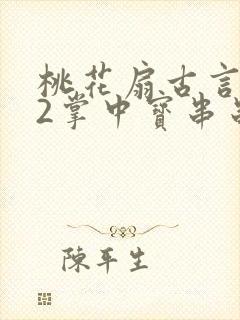 桃花扇古言
2掌中寶串
陳平生